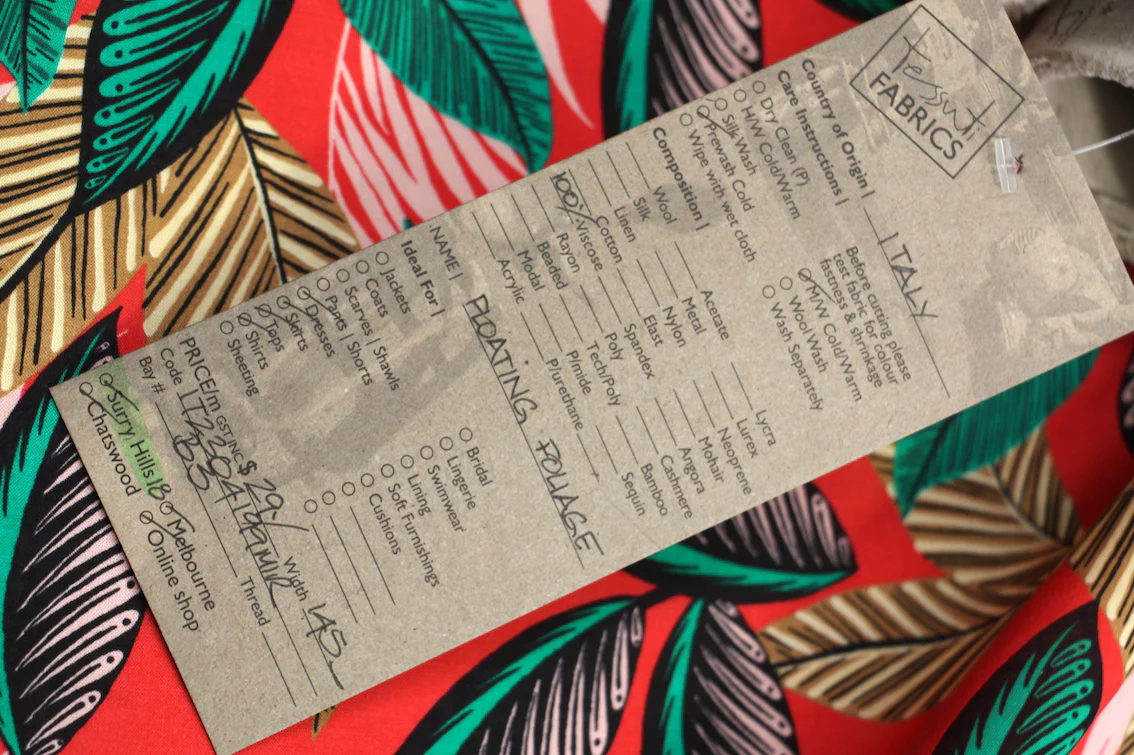 Tessuti
FABRICS
Country of Origin | ITALY
Care Instructions | Before cutting please
test fabric for colour
fastness & shrinkage
Dry Clean (P)
H/W Cold/Warm
Silk Wash
Prewash Cold
Wipe with wet cloth
M/W Cold/Warm
Wool Wash
Wash Separately
Composition |
Wool Acetate Lycra
Silk Metal Lurex
Linen Nylon Neoprene
Cotton Elast Mohair
100% Viscose Spandex Angora
Rayon Poly Cashmere
Beaded Tech/Poly Bamboo
Modal P/mide Sequin
Acrylic P/urethane
NAME | FLOATING FOLIAGE
Ideal For |
Jackets Bridal
Coats Lingerie
Scarves | Shawls Swimwear
Pants | Shorts Lining
Dresses Soft Furnishings
Skirts Cushions
Tops
Shirts
Sheeting
PRICE/m GST INC $ 29/ Width 145
Code
Bay # Thread
Surry Hills Melbourne
Chatswood Online shop